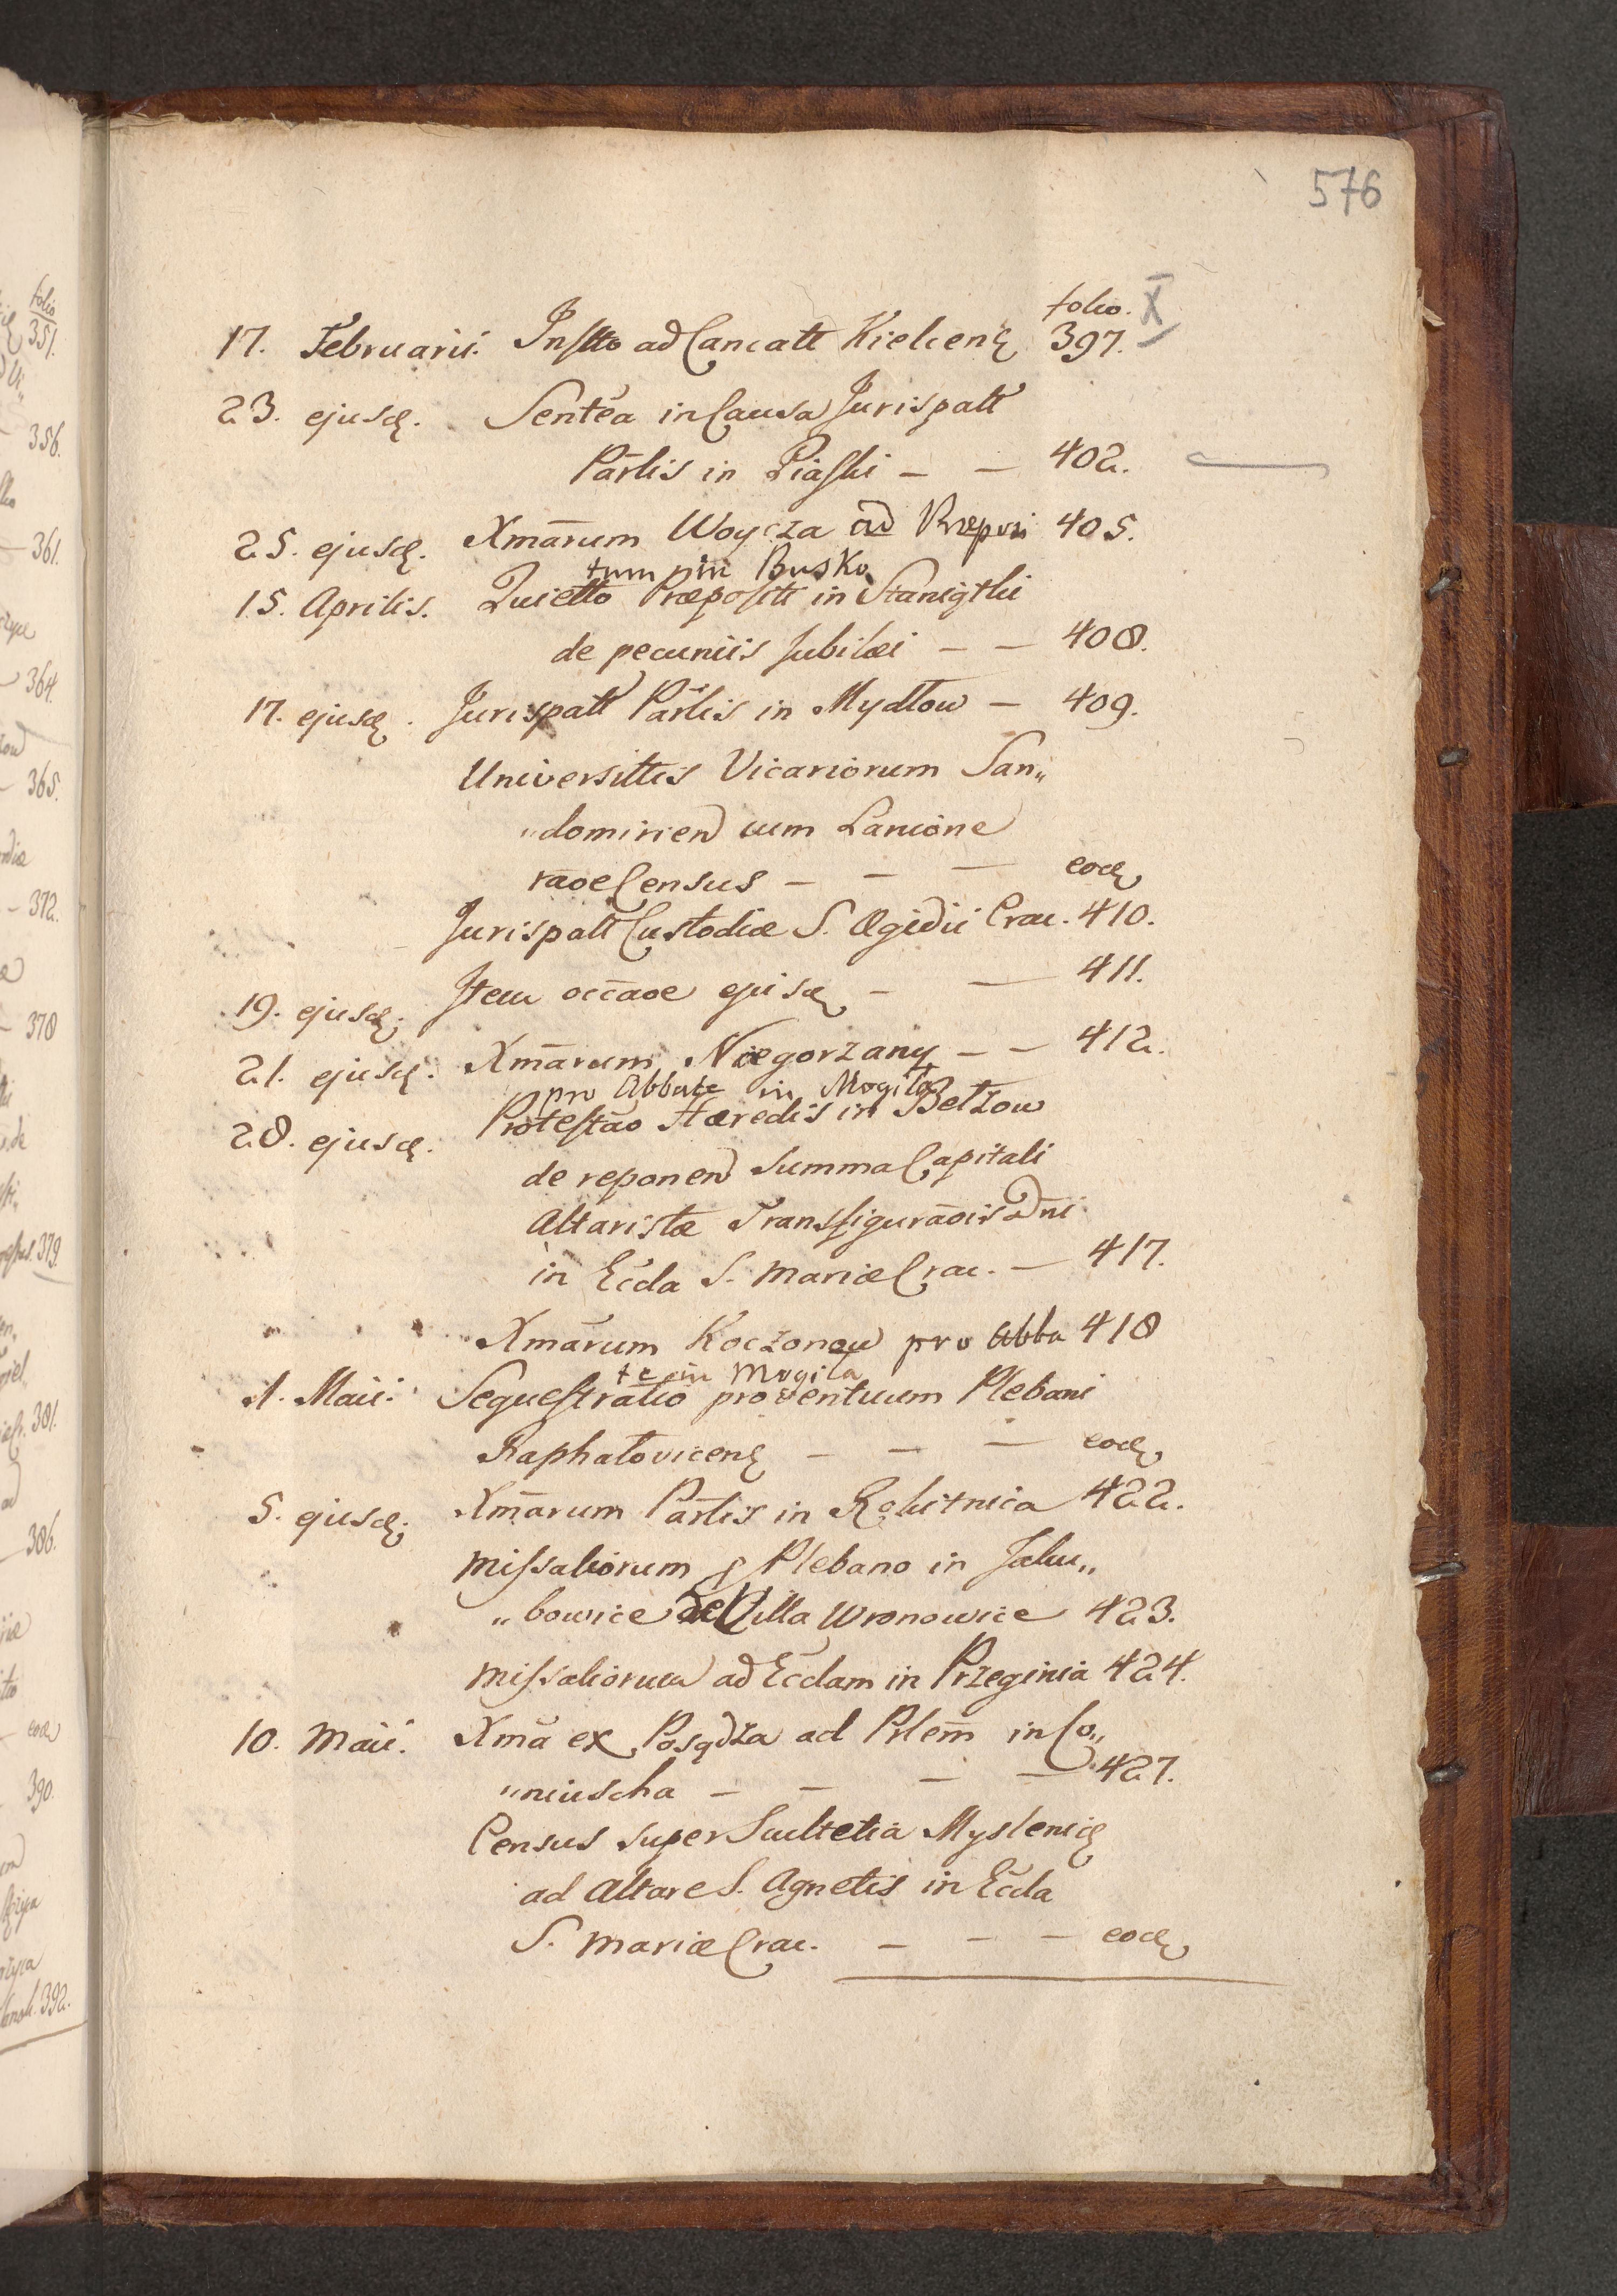 576
folio. X
17. Februarii. Instto ad Cancatt Kielcenę 397.
23. ejusdę. Sentēa in Causa Jurispatt
Pārlis in Piaski – – 402.
25. ejusdę. Xmārum Woycza ad Præposi 405.
tum in Busko
15. Aprilis. Quietto Præpositi in
de pecuniis Jubilæi – – 408.
17. ejusdę. Jurispatt Pārlis in Mydłow – 409.
Universittis Vicariorum San„
„domirien cum Lanione
rāoe Census – – – eodę
Jurispatt Custodiæ S. Ægidii Crac. 410.
19. ejusdę. Item occāoe ejusdę – – 411.
21. ejusdę. Xmārum Niegorzany – – 412.
pro Abbate in Mogiła
28. ejusdę. Protestāo Hæredis in Bełzow
de reponen Summa Capitali
Altaristæ Transfigurāois Dni
in Eccla S. Mariæ Crac. – 417.
Xmārum Koczonow pro Abba 418
te in Mogiła
1. Maii. Sequestratio proventuum Plebani
Raphałovicenę – – – eodę
5. ejusdę. Xmārum Pārlis in Rokitnica 422.
Missaliorum p Plebano in Jaku„
„bowice de Villa Wronowice 423.
Missaliorum ad Ecclam in Przeginia 424.
10. Maii. Xma ex Posądza ad Prlem in Co„
„niuscha – – – – 427.
Census super Scultetia Myslenicę
ad Altare S. Agnetis in Eccla
S. Mariæ Crac. – – – eodę
folio
351.
356.
361.
364.
365.
372.
378
379.
381.
386.
eodę
390.
392.